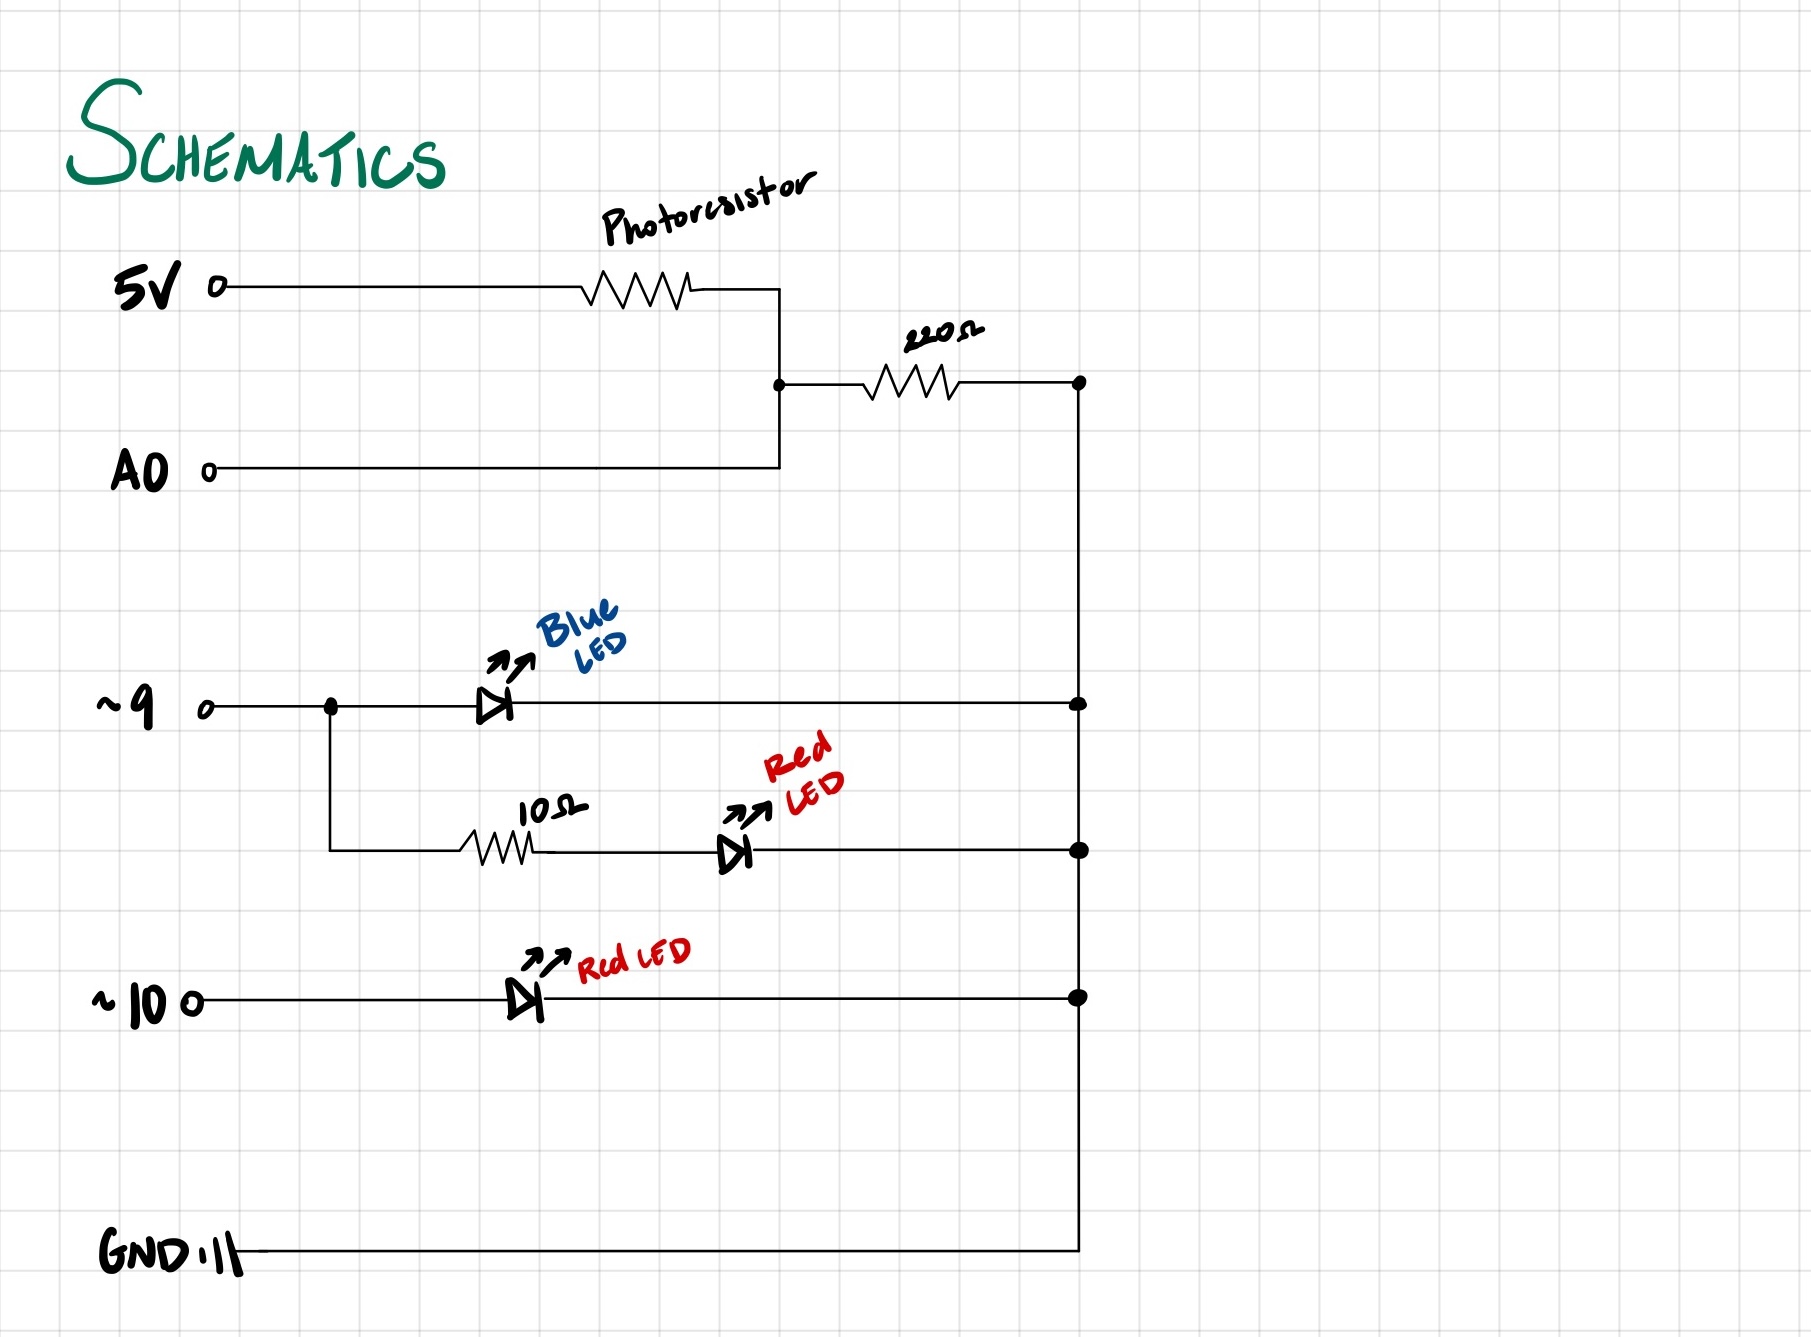 SCHEMATICS
Photoresistor
5V
220Ω
A0
Blue
LED
~9
Red
LED
10Ω
Red LED
~10
GND